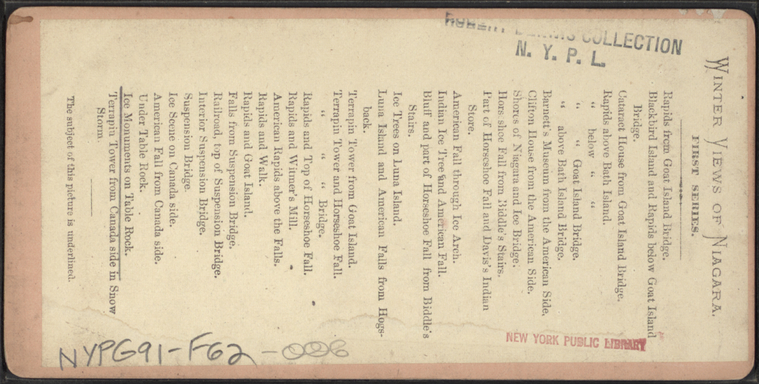 WINTER VIEWS OF NIAGARA.
FIRST SERIES.
Rapids from Goat Island Bridge.
Blackbird Island and Rapids below Goat Island
Bridge.
Cataract House from Goat Island Bridge.
Rapids above Bath Island.
" below " "
" " Goat Island Bridge.
" above Bath Island Bridge.
Barnett's Museum from the American Side.
Clifton House from the American Side.
Shores of Niagara and Ice Bridge.
Horse-shoe Fall from Biddle's Stairs.
Part of Horseshoe Fall and Davis's Indian
Store.
American Fall through Ice Arch.
Indian Ice Tree and American Fall.
Bluff and part of Horseshoe Fall from Biddle's
Stairs.
Ice Trees on Luna Island.
Luna Island and American Falls from Hogs-
back.
Terrapin Tower from Goat Island.
Terrapin Tower and Horseshoe Fall.
" " Bridge.
Rapids and Top of Horseshoe Fall.
Rapids and Witmer's Mill.
American Rapids above the Falls.
Rapids and Walk.
Rapids and Goat Island.
Falls from Suspension Bridge.
Railroad, top of Suspension Bridge.
Interior Suspension Bridge.
Suspension Bridge.
Ice Scene on Canada side.
American Fall from Canada side.
Under Table Rock.
Ice Monuments on Table Rock.
Terrapin Tower from Canada side in Snow
Storm.
The subject of this picture is underlined.
ROBERT DENNIS COLLECTION
N. Y. P. L.
NEW YORK PUBLIC LIBRARY
NYPG91-F62-006